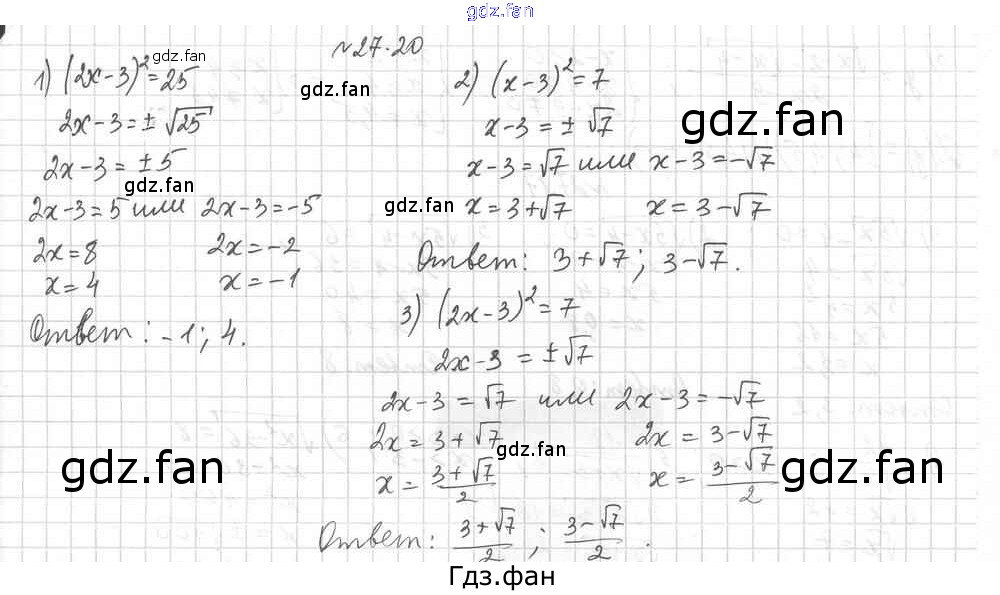 gdz.fan
№27.20
1) (2x-3)²=25
gdz.fan
2x-3=±√25
2x-3=±5
gdz.fan
2x-3=5 или 2x-3=-5
2x=8 2x=-2
x=4 x=-1
Ответ: -1; 4.
gdz.fan
2) (x-3)²=7
x-3=±√7
gdz.fan
x-3=√7 или x-3=-√7
gdz.fan
x=3+√7 x=3-√7
Ответ: 3+√7; 3-√7.
3) (2x-3)²=7
2x-3=±√7
2x-3=√7 или 2x-3=-√7
2x=3+√7 2x=3-√7
gdz.fan
gdz.fan
x=(3+√7)/2 x=(3-√7)/2
gdz.fan
Ответ: (3+√7)/2; (3-√7)/2.
Гдз.фан